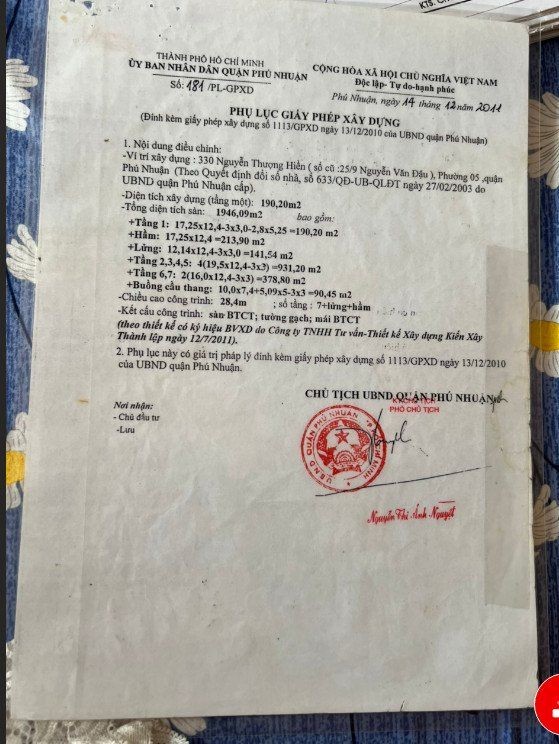 KTS.
THÀNH PHỐ HỒ CHÍ MINH
ỦY BAN NHÂN DÂN QUẬN PHÚ NHUẬN
Số: 181/PL-GPXD
CỘNG HÒA XÃ HỘI CHỦ NGHĨA VIỆT NAM
Độc lập- Tự do-hạnh phúc
Phú Nhuận, ngày 14 tháng 12 năm 2011
PHỤ LỤC GIẤY PHÉP XÂY DỰNG
(Đính kèm giấy phép xây dựng số 1113/GPXD ngày 13/12/2010 của UBND quận Phú Nhuận)
1. Nội dung điều chỉnh:
-Ví trí xây dựng : 330 Nguyễn Thượng Hiền ( số cũ :25/9 Nguyễn Văn Đậu ), Phường 05 ,quận
Phú Nhuận (Theo Quyết định đổi số nhà, số 633/QĐ-UB-QLĐT ngày 27/02/2003 do
UBND quận Phú Nhuận cấp).
-Diện tích xây dựng (tầng một): 190,20m2
-Tổng diện tích sàn: 1946,09m2 bao gồm:
+Tầng 1: 17,25x12,4-3x3,0-2,8x5,25 =190,20 m2
+Hầm: 17,25x12,4 =213,90 m2
+Lửng: 12,14x12,4-3x3,0=141,54 m2
+Tầng 2,3,4,5: 4(19,5x12,4-3x3)=931,20 m2
+Tầng 6,7: 2(16,0x12,4-3x3)=378,80 m2
+Buồng cầu thang: 10,0x7,4+5,09x5-3x3= 90,45 m2
-Chiều cao công trình: 28,4m ; số tầng : 7+lửng+hầm
-Kết cấu công trình: sàn BTCT; tường gạch; mái BTCT
(theo thiết kế có ký hiệu BVXD do Công ty TNHH Tư vấn-Thiết kế Xây dựng Kiến Xây
Thành lập ngày 12/7/2011).
2. Phụ lục này có giá trị pháp lý đính kèm giấy phép xây dựng số 1113/GPXD ngày 13/12/2010
của UBND quận Phú Nhuận.
CHỦ TỊCH UBND QUẬN PHÚ NHUẬN
KT.CHỦ TỊCH
PHÓ CHỦ TỊCH
Nơi nhận:
- Chủ đầu tư
-Lưu
U.B.N.D QUẬN PHÚ NHUẬN
Nguyễn Thị Ánh Nguyệt